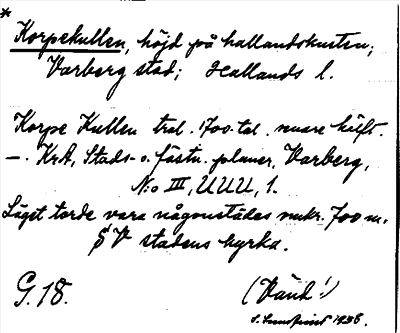 *
Korpekullen, höjd på hallandskusten;
Varberg stad; Hallands l.
Korpe Kullen tral. 1700-tal. senare hälft.
—. KrA, Stads- o. fästn. planer, Varberg,
N:o III, UUU, 1.
Läget torde vara någonstädes omkr. 700 m.
SV stadens kyrka.
G. 18.
(Vänd!)
1938.